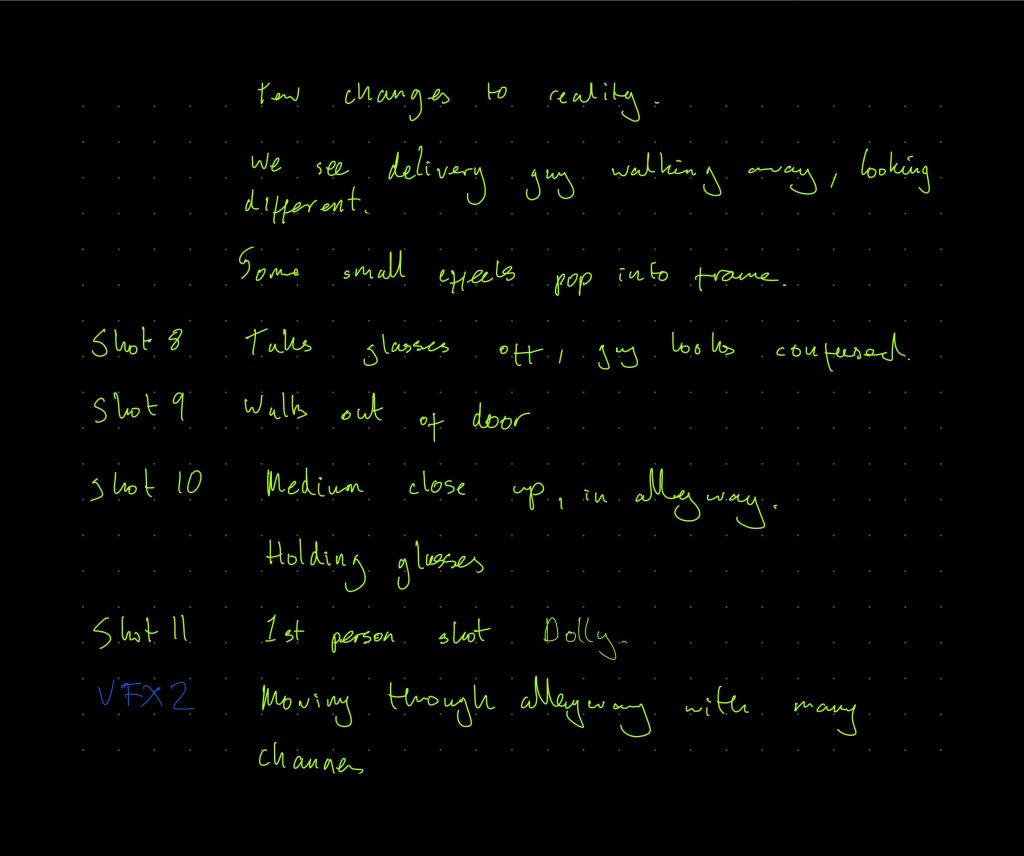 Few changes to reality.
We see delivery guy walking away, looking
different.
Some small effects pop into frame.
Shot 8 Takes glasses off, guy looks confused.
Shot 9 Walks out of door
Shot 10 Medium close up, in alleyway.
Holding glasses
Shot 11 1st person shot Dolly.
VFX2 Moving through alleyway with many
changes